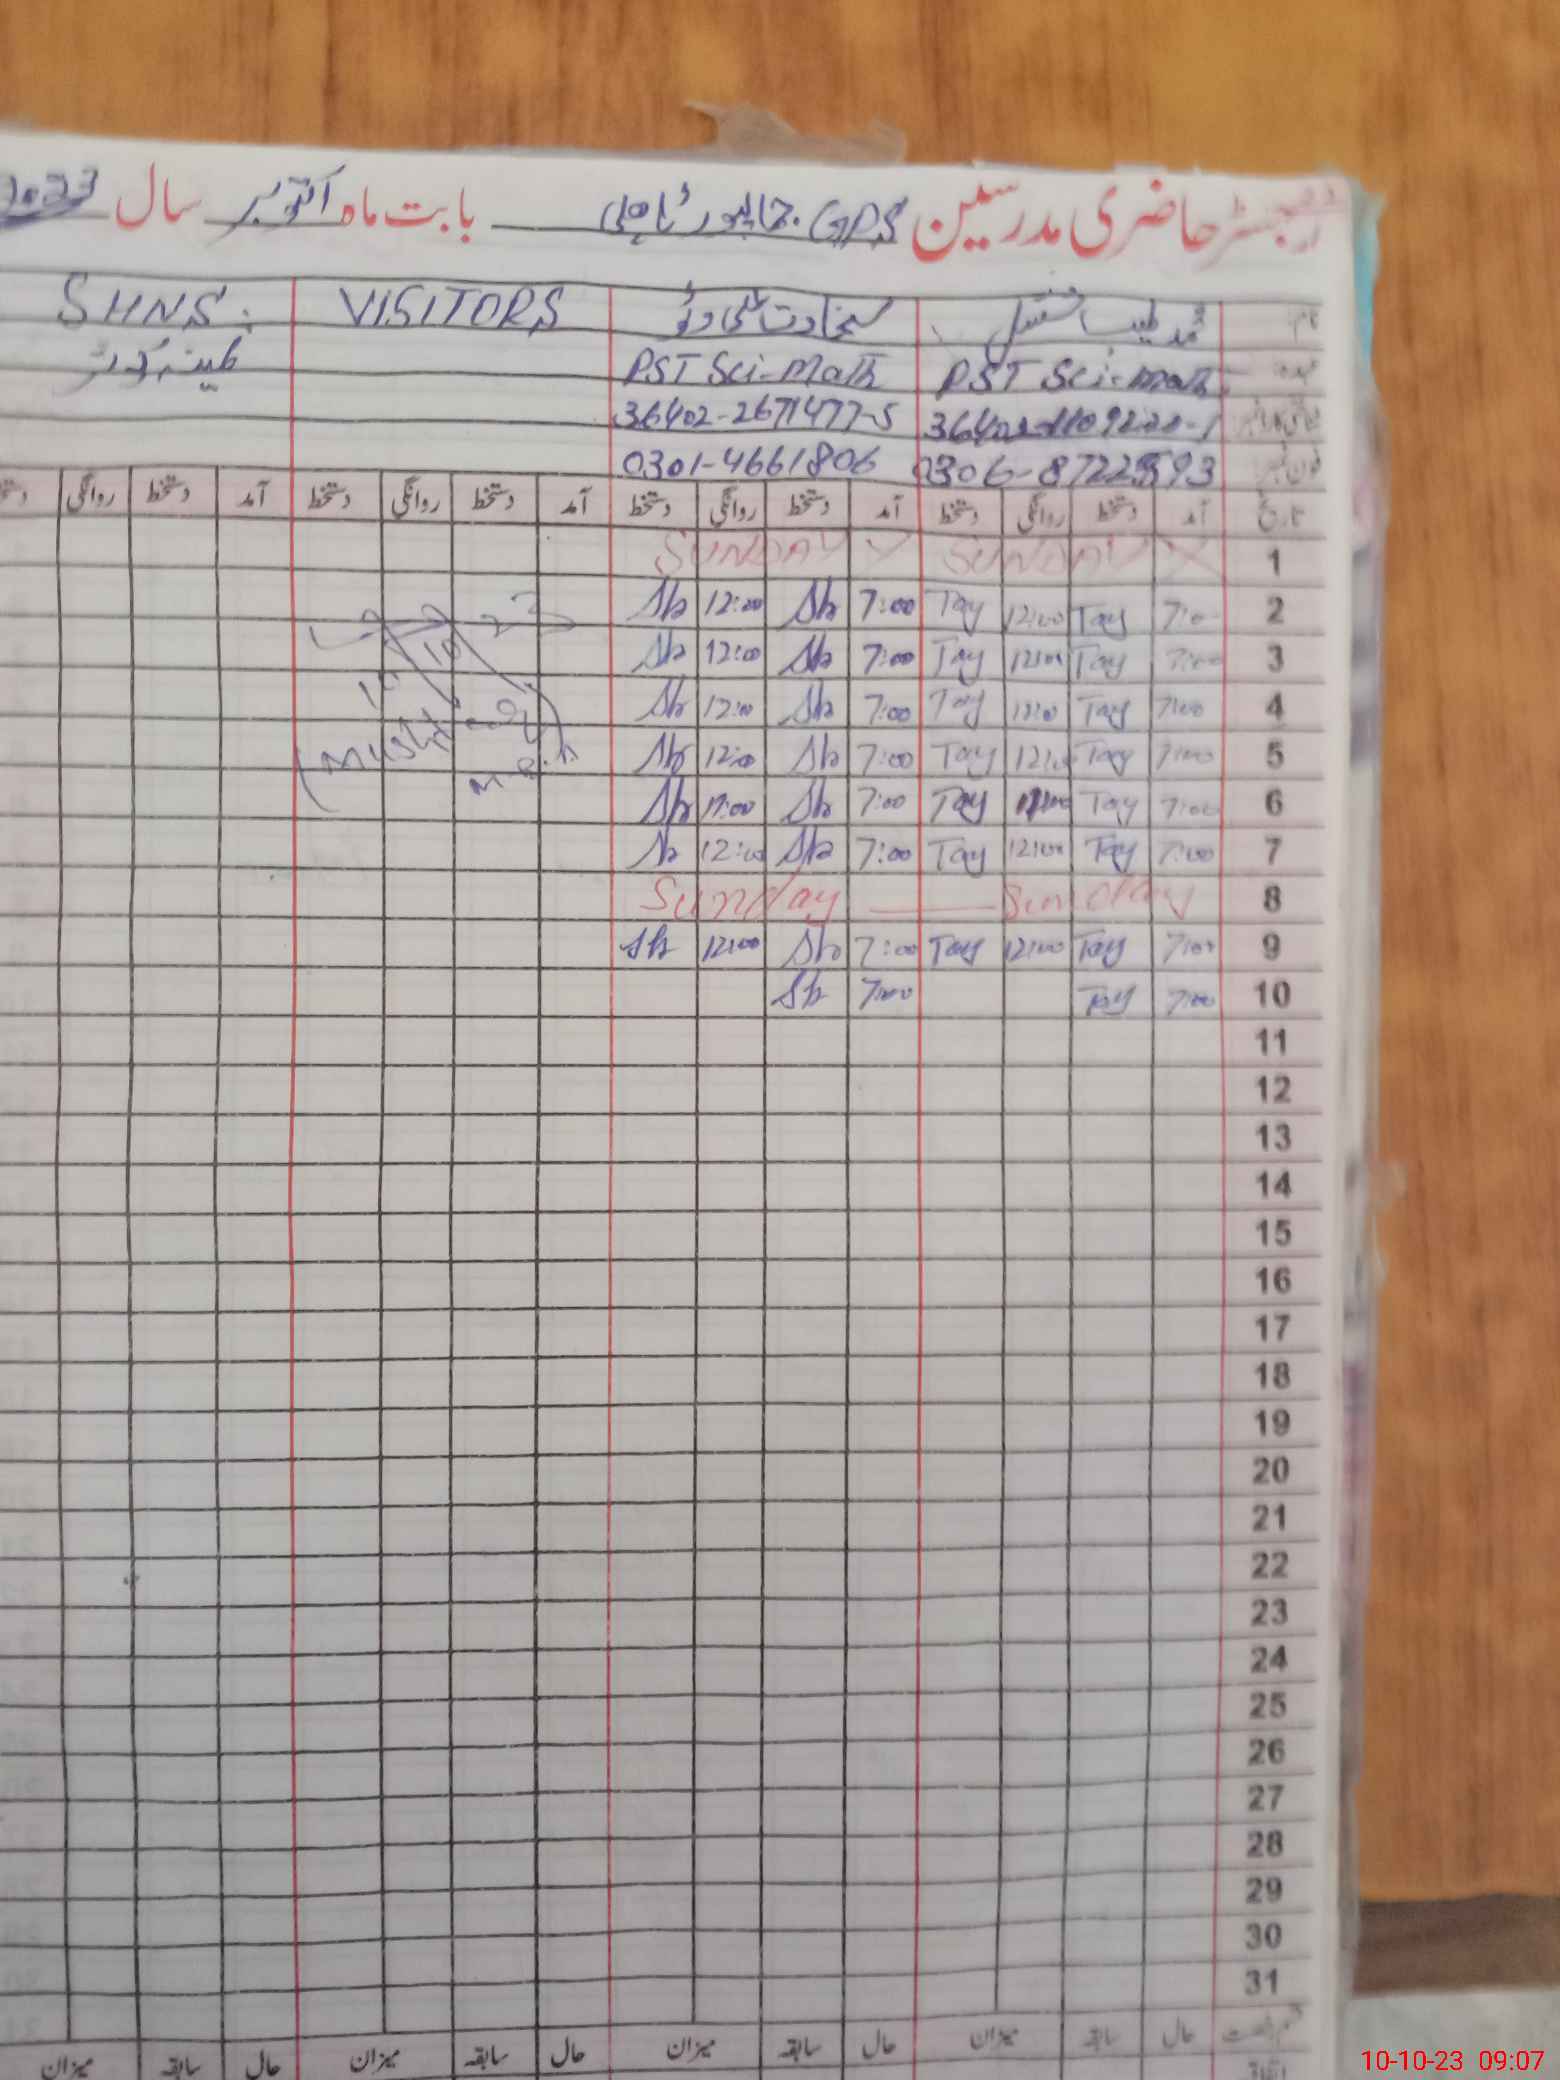 رجسٹر حاضری مدرسین GPS بابت ماہ اکتوبر سال 2023
نام VISITORS SHNS.
عہدہ PST Sci-Math PST Sci-Math
36402-2671477-5
فون نمبر 0306-8722593 0301-4661806
تاریخ آمد دستخط روانگی دستخط آمد دستخط روانگی دستخط آمد دستخط روانگی دستخط آمد دستخط روانگی
1 SUNDAY SUNDAY
2 7:0 Tay 12:00 Tay 7:00 Sh 12:00 Sh
3 7:00 Tay 12:00 Tay 7:00 Sh 12:00 Sh
4 7:00 Tay 12:00 Tay 7:00 Sh 12:00 Sh
5 7:00 Tay 12:00 Tay 7:00 Sh 12:00 Sh
6 7:00 Tay 12:00 Tay 7:00 Sh Sh
7 7:00 Tay 12:00 Tay 7:00 Sh 12:00 Sh
8 Sunday Sunday
9 7:00 Tay 12:00 Tay 7:00 Sh 12:00 Sh
10 7:00 Tay 7:00 Sh
11
12
13
14
15
16
17
18
19
20
21
22
23
24
25
26
27
28
29
30
31
حال سابقہ میزان حال سابقہ میزان حال سابقہ میزان حال سابقہ میزان
10-10-23 09:07